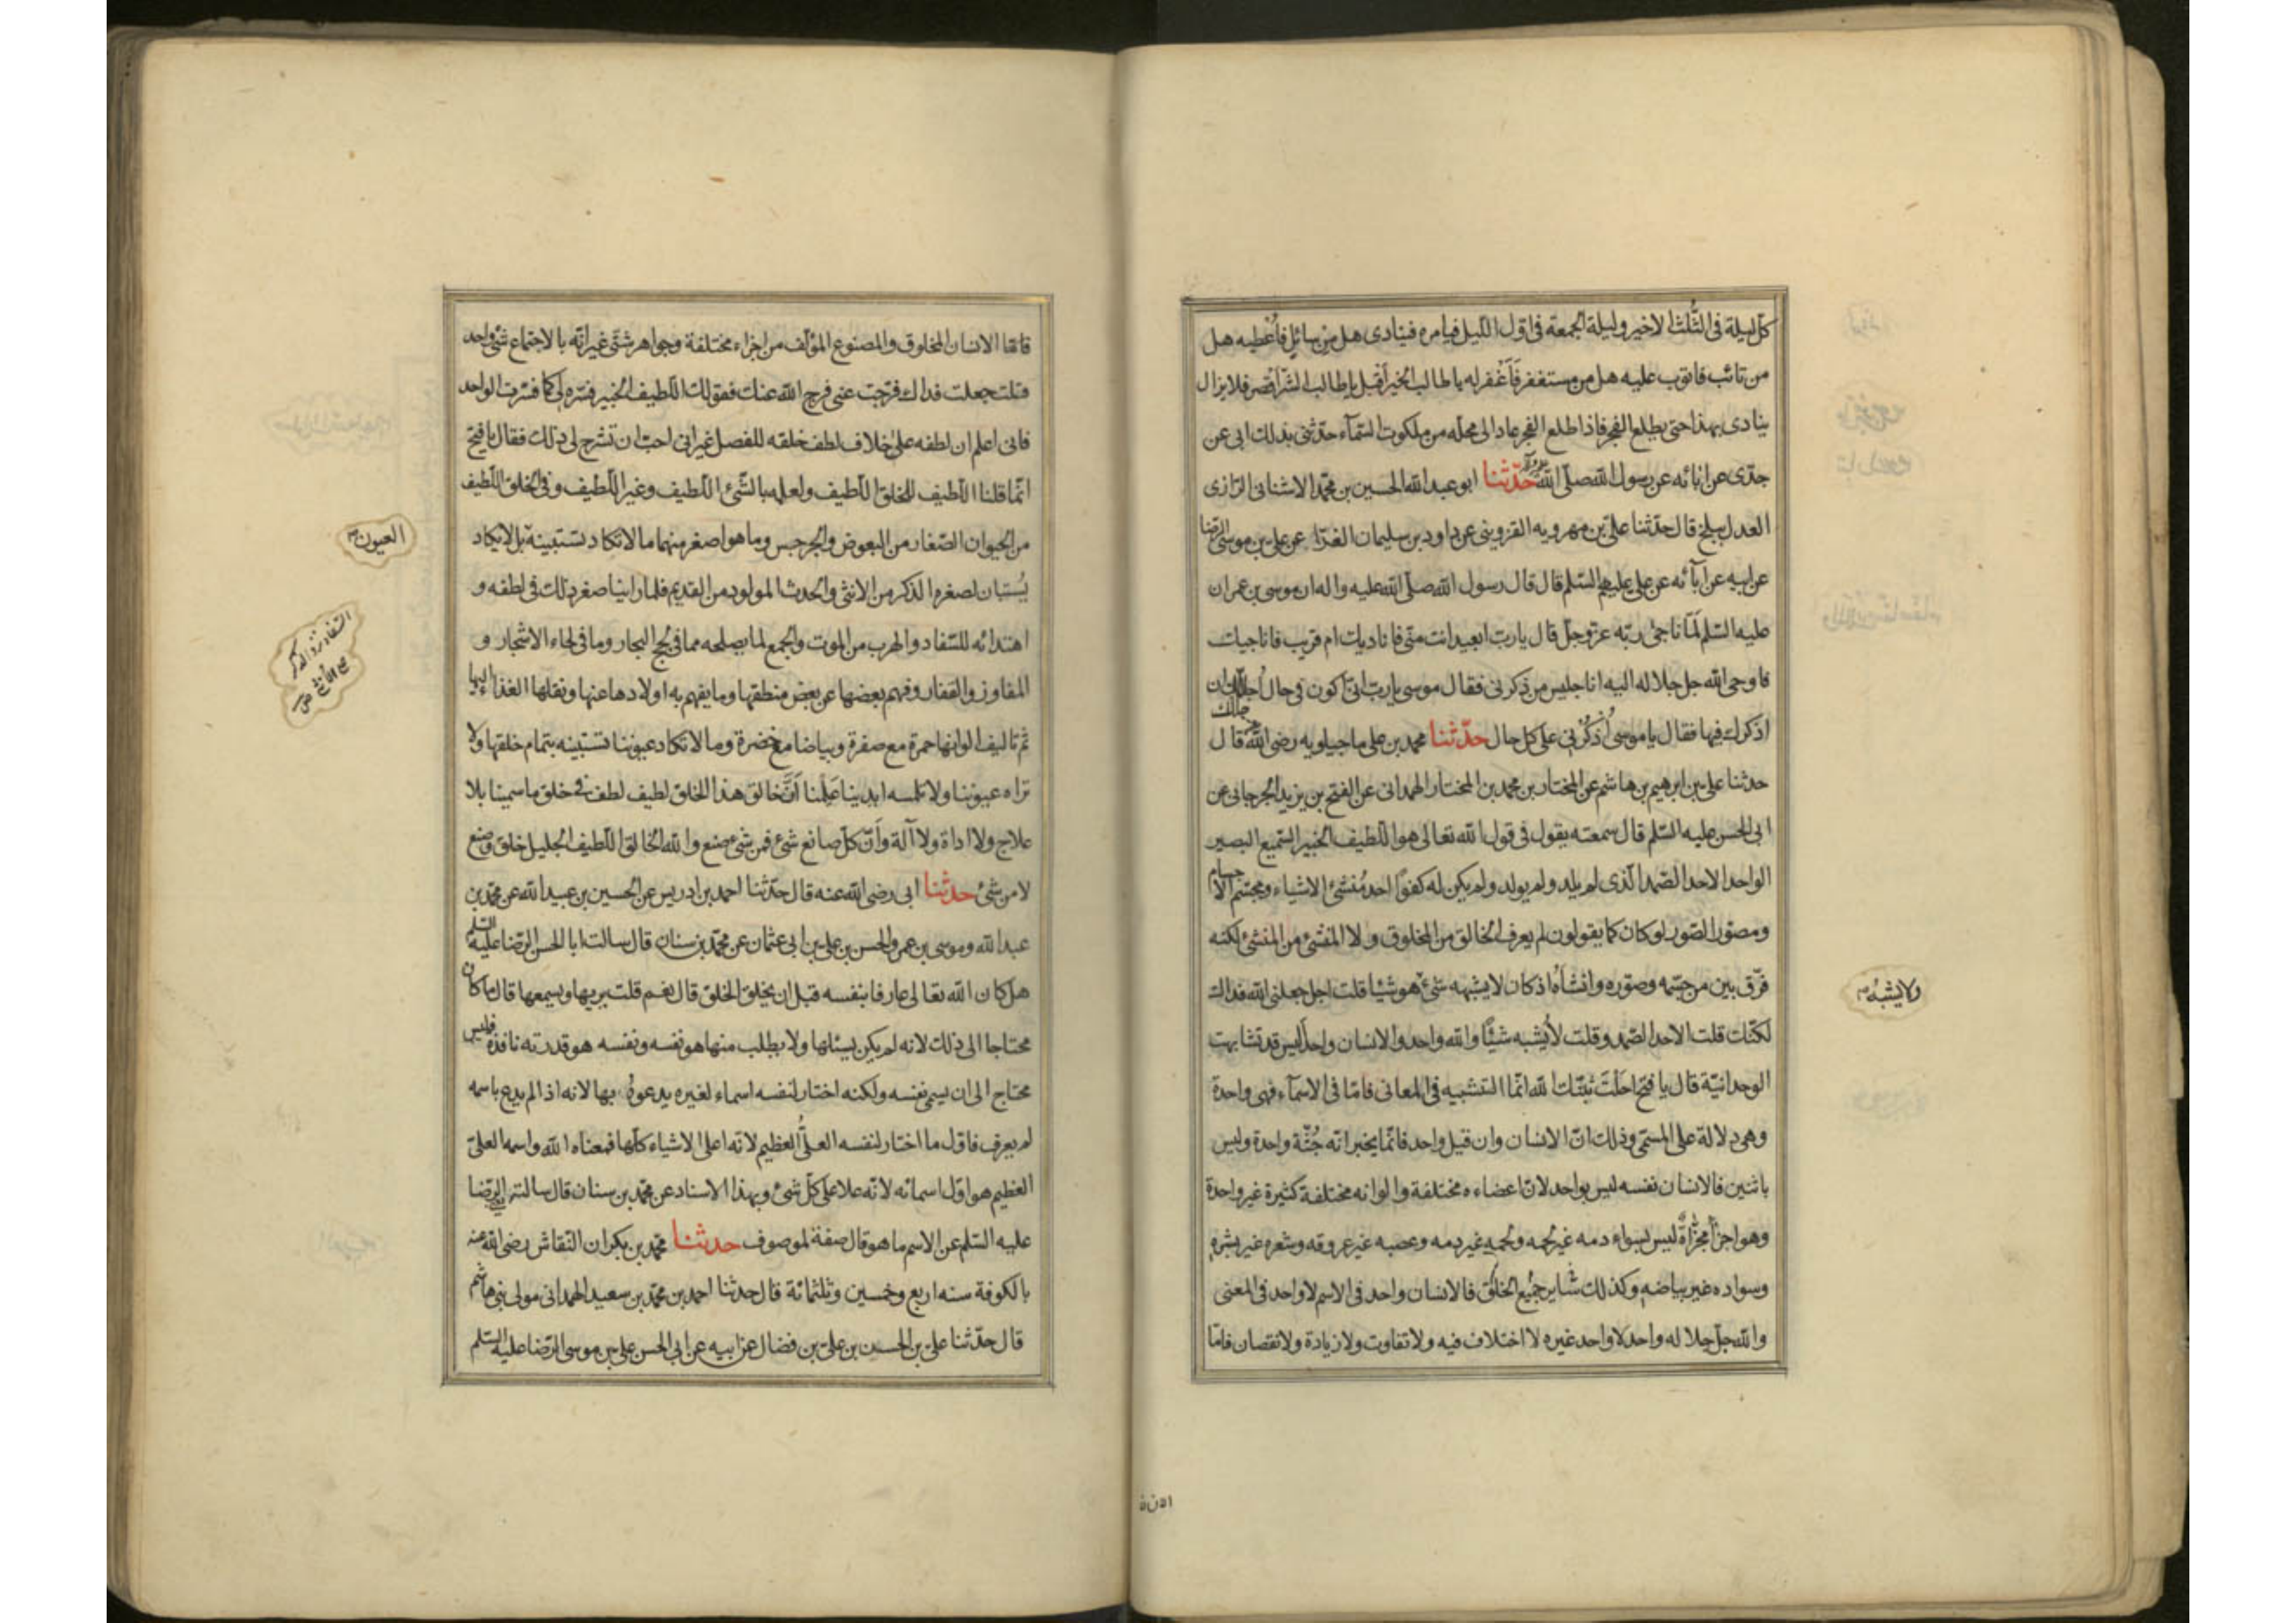 كل ليلة فى الثلث الاخير وليلة الجمعة فى اول الليل فيامره فينادى هل من سائل فاعطيه هل
من تائب فاتوب عليه هل من مستغفر فَاَغْفر له يا طالب الخير اقبل يا طالب الشر اقصر فلا يزال
ينادى بهذا حتى يطلع الفجر فاذا طلع الفجر عاد الى محله من ملكوت السّمآء حدّثنى بذلك ابى عن
جدّى عن ابائه عن رسول الله صلّى الله عليه وآله حدّثنا ابو عبد الله الحسين بن محمّد الاشنانى الرّازى
العدل ببلخ قال حدّثنا علىّ بن مهرويه القزوينى عن داود بن سليمان الفرّا عن على بن موسى الرّضا
عن ابيه عن ابآئه عن على عليهم السّلم قال قال رسول الله صلّى الله عليه واله ان موسى بن عمران
عليه السّلم لَمّا ناجىٰ ربّه عزّ وجلّ قال يا ربّ ابعيد انت منّى فاناديك ام قريب فاناجيك
فاوحى الله جل جلاله اليه انا جليس من ذكرنى فقال موسى يا ربّ انّى اكون فى حال اُجلّك ان
اذكرك فيها فقال يا موسى اُذكُرْنى على كل حال حدّثنا محمد بن على ماجيلويه رضى الله عنه قال
حدثنا على بن ابرهيم بن هاشم عن المختار بن محمد بن المختار الهمدانى عن الفتح بن يزيد الجرجانى عن
ابى الحسن عليه السّلم قال سمعته يقول فى قول الله تعالى هو اللّطيف الخبير السّميع البصير
الواحد الاحد الصّمد الّذى لم يلد ولم يولد ولم يكن له كفوًا احد مُنشئ الاشياء ومجسّم الاجسام
ومصوّر الصّور لو كان كما يقولون لم يعرف الخالق من المخلوق ولا المنشئ من المنشئ لكنّه
فرّق بين من جسّمه وصوّره وانشأه اذ كان لا يشبهه شئ هو شيئا قلت اجل جعلنى الله فداك
لكنّك قلت الاحد الصّمد وقلت لا يُشبه شيئًا والله واحد والانسان واحد اليس قد تشابهت
الوحدانيّة قال يا فتح احلت ثبّتك الله انّما التشبيه فى المعانى فامّا فى الاسمآء فهى واحدة
وهى دلالة على المسمّى وذلك انّ الانسان وان قيل واحد فانّما يخبر انّه جُثّة واحدة وليس
باثنين فالانسان نفسه ليس بواحد لانّ اعضاءه مختلفة والوانه مختلفة كثيرة غير واحدة
وهو اجزآ مجزّاة ليس بسواء دمه غير لحمه ولحمه غير دمه وعصبه غير عروقه وشعره غير بشره
وسواده غير بياضه وكذلك ساير جميع الخلق فالانسان واحد فى الاسم لا واحد فى المعنى
والله جلّ جلاله واحد لا واحد غيره لا اختلاف فيه ولا تفاوت ولا زيادة ولا نقصان فامّا
ولا يشبه
فامّا الانسان المخلوق والمصنوع المؤلّف من اجزاء مختلفة وجواهر شتّى غير انّه بالاجتماع شئ واحد
قلت جعلت فداك فرّجت عنى فرج الله عنك فقولك اللّطيف الخبير فسّره لى كما فسّرت الواحد
فانى اعلم ان لطفه على خلاف لطف خلقه للفصل غير انى احبّ ان تشرح لى ذلك فقال يا فتح
انّما قلنا اللّطيف للخلق اللّطيف ولعلمه بالشّئ اللّطيف وغير اللّطيف وفى الخلق اللّطيف
من الحيوان الصّغار من البعوض والجرجس وما هو اصغر منهما ما لا تكاد تستبينه بل لا يكاد
يُستبان لصغره الذكر من الانثى والحدث المولود من القديم فلما راينا صغر ذلك فى لطفه و
اهتدائه للسّفاد والهرب من الموت والجمع لما يصلحه مما فى لجج البحار وما فى لحاء الاشجار و
المفاوز والقفار وفهم بعضها عن بعض منطقها وما يفهم به اولادها عنها ونقلها الغذاء اليها
ثم تاليف الوانها حمرة مع صفرة وبياضا مع خضرة وما لا تكاد عيوننا تستبينه بتمام خلقها ولا
تراه عيوننا ولا تلمسه ايدينا عَلِمْنا اَنَّ خالق هذا الخلق لطيف لطف فى خلق ما سمينا بلا
علاج ولا اداة ولا آلة وَاَنّ كلّ صانع شئ فمن شئ صنع والله الخالق اللّطيف الجليل خلق وصنع
لا من شئ حدثنا ابى رضى الله عنه قال حدّثنا احمد بن ادريس عن الحسين بن عبيد الله عن محمّد بن
عبد الله وموسى بن عمر والحسن بن على بن ابى عثمان عن محمّد بن سنان قال سالت ابا الحسن الرّضا عليه السّلم
هل كان الله تعالى عارفا بنفسه قبل ان يخلق الخلق قال نعم قلت يريها ويسمعها قال ما كان
محتاجا الى ذلك لانه لم يكن يسئلها ولا يطلب منها هو نفسه ونفسه هو قدرته نافذة فليس
محتاج الى ان يسمى نفسه ولكنه اختار لنفسه اسماء لغيره يدعوهُ بها لانه اذا لم يدع باسمه
لم يعرف فاوّل ما اختار لنفسه العلىّ العظيم لانّه اعلى الاشياء كلّها فمعناه الله واسمه العلىّ
العظيم هو اوّل اسمائه لانّه علا على كلّ شئ وبهذا الاسناد عن محمّد بن سنان قال سالته الرّضا
عليه السّلم عن الاسم ما هو قال صفة لموصوف حدثنا محمّد بن بكران النّقاش رضى الله عنه
بالكوفة سنه اربع وخمسين وثلثمائة قال حدثنا احمد بن محمّد بن سعيد الهمدانى مولى بنى هاشم
قال حدّثنا علىّ بن الحسن بن علىّ بن فضال عن ابيه عن ابى الحسن على بن موسى الرّضا عليه السّلم
العيون
السّفاد نزو الذكر
على الأنثى